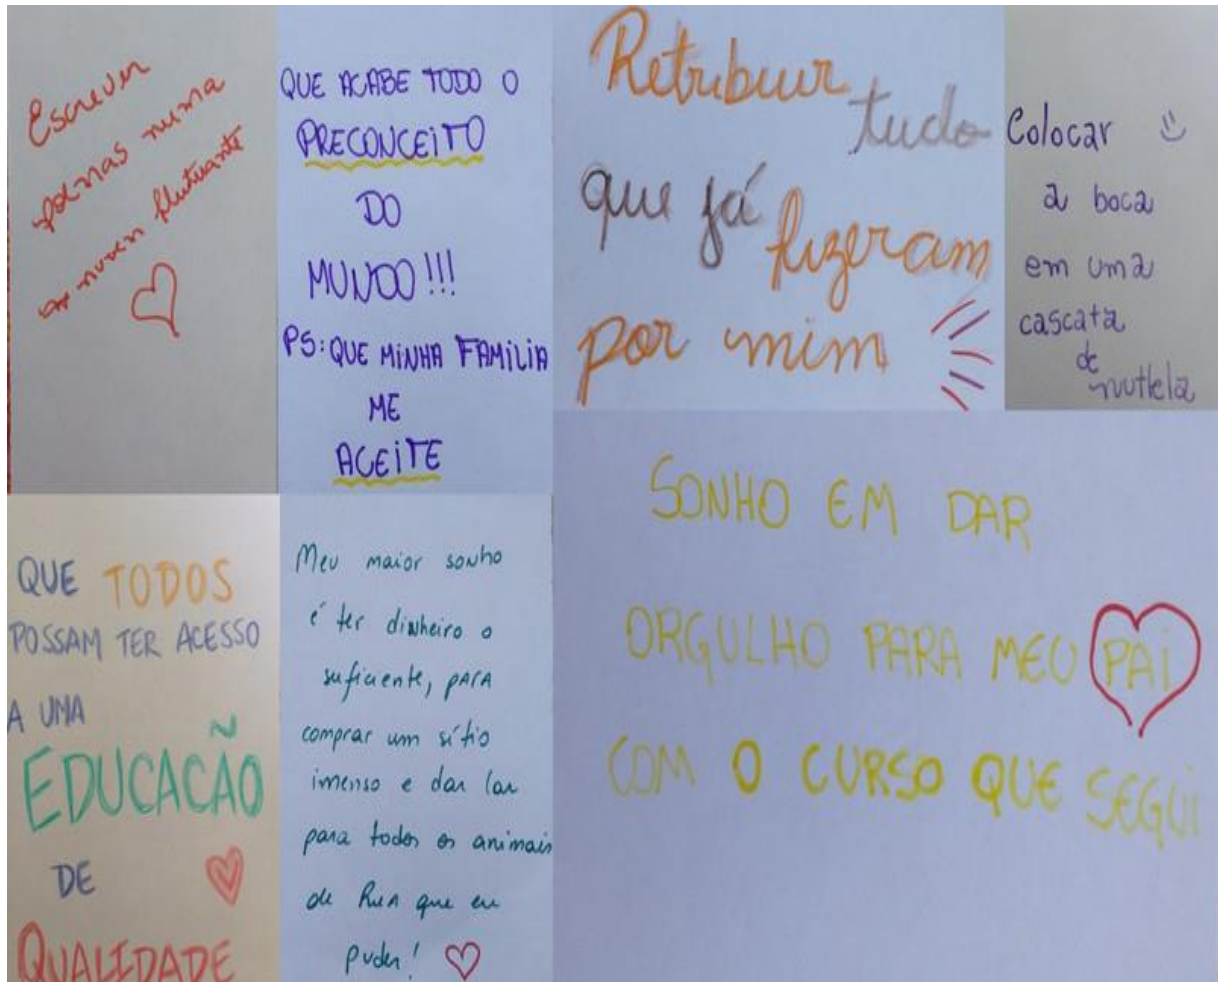 Escrever
poemas numa
nuvem flutuante
QUE ACABE TODO O
PRECONCEITO
DO
MUNDO!!!
PS: QUE MINHA FAMILIA
ME
ACEITE
Retribuir
tudo
que já
fizeram
por mim
Colocar
a boca
em uma
cascata
de
nutlela
QUE TODOS
POSSAM TER ACESSO
A UMA
EDUCACÃO
DE
QUALIDADE
Meu maior sonho
é ter dinheiro o
suficiente, para
comprar um sítio
imenso e dar lar
para todos os animais
de Rua que eu
puder!
SONHO EM DAR
ORGULHO PARA MEU PAI
COM O CURSO QUE SEGUI